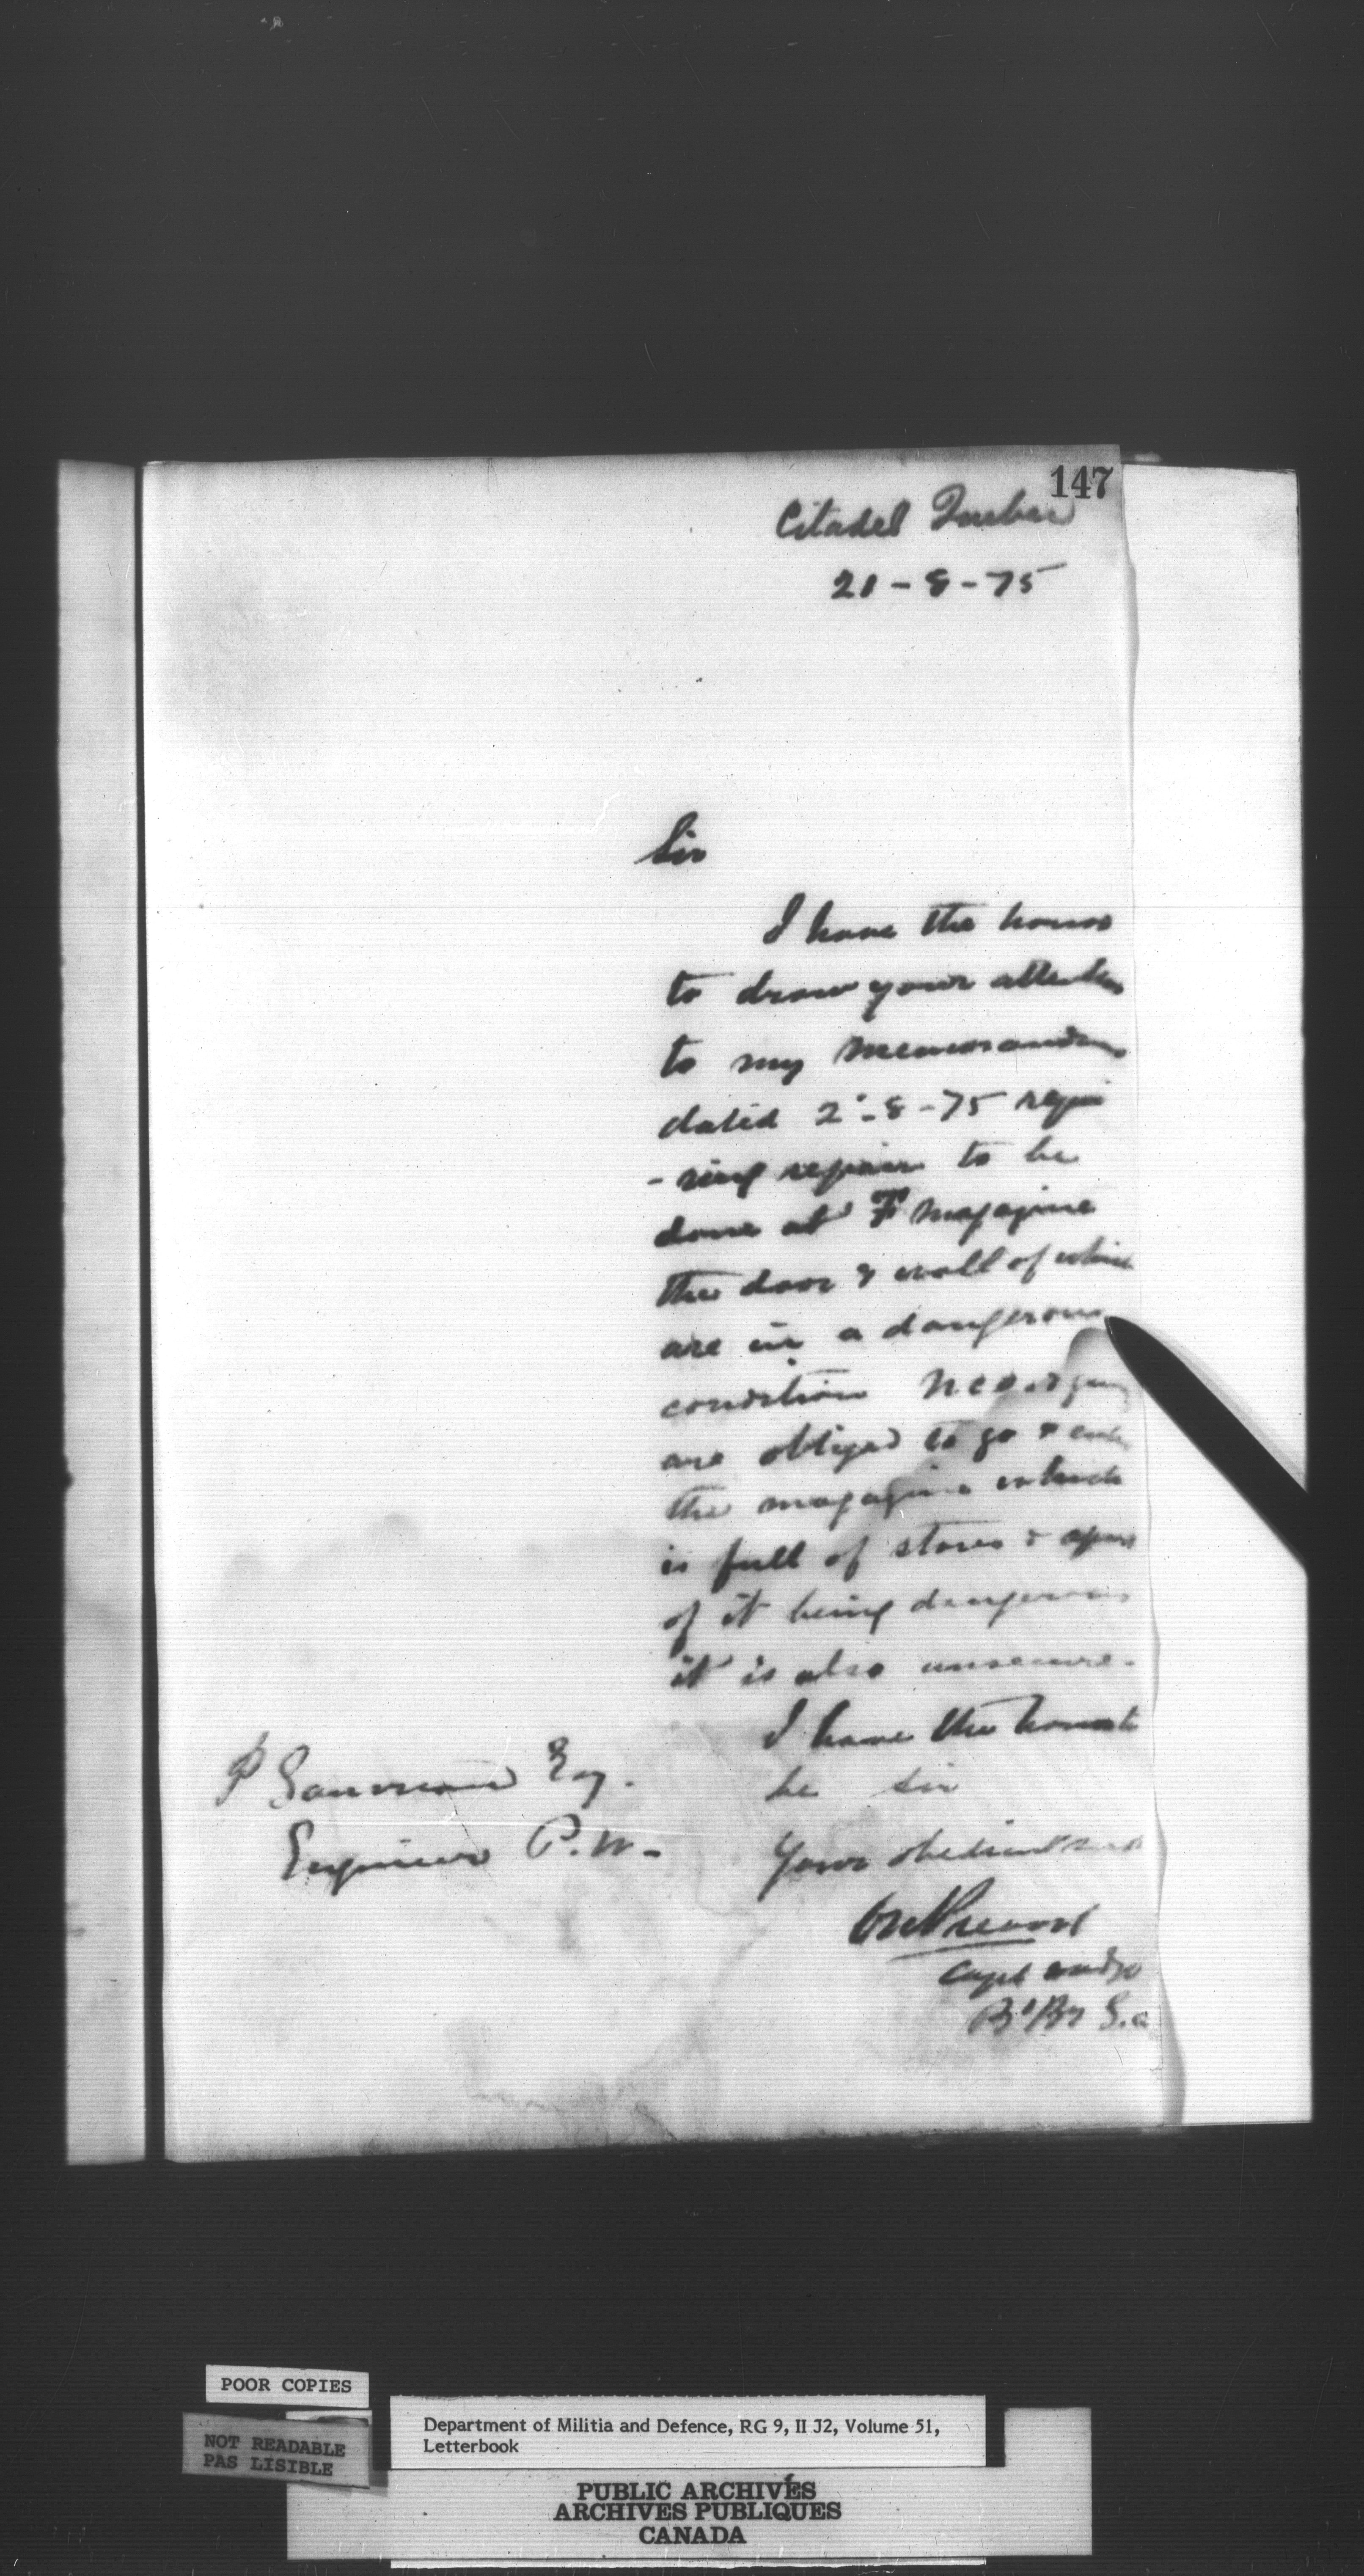 147
Citadel Quebec
21-8-75
Sir
I have the honor
to draw your attention
to my memorandum
dated 2-8-75 requi
-ring repairs to be
done at magazine
the door & wall of which
are in a dangerous
condition
are obliged to go &
the magazine which
is full of stores &
of it being dangerous
it is also unsecure.
I have the honor to
be Sir
Your obedient
P Esq.
Engineer P.W.
Capt
By G.A
POOR COPIES
NOT READABLE
PAS LISIBLE
Department of Militia and Defence, RG 9, II J2, Volume 51,
Letterbook
PUBLIC ARCHIVES
ARCHIVES PUBLIQUES
CANADA